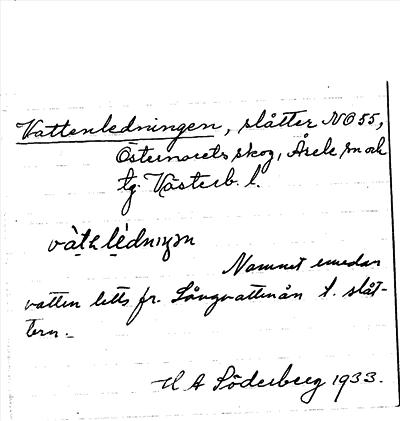 Vattenledningen, slåtter NO55,
Östernorets skog, Åsele sn och
tg. Västerb. l.
vàth lèdnıŋən
Namnet emedan
vatten letts fr. Långvattenån t. slåt-
tern.-
H A Söderberg 1933.